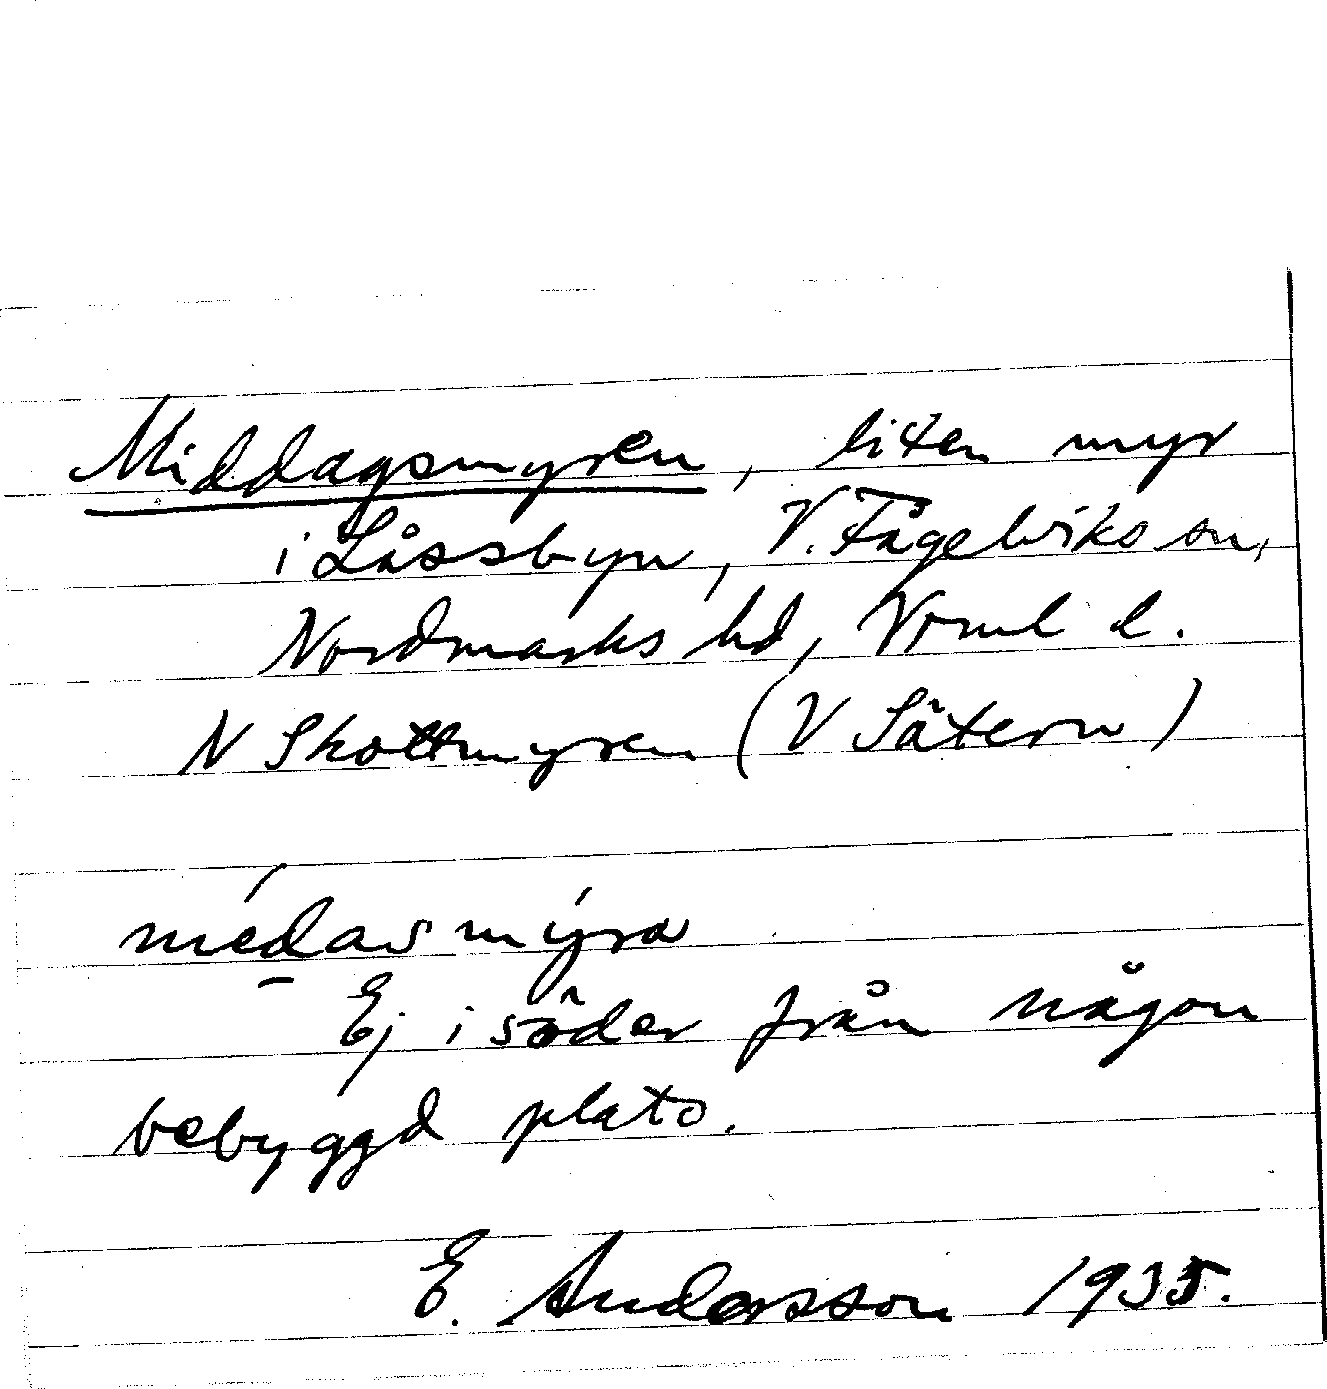 Middagsmyren, liten myr
i Låssbyn, V. Fågelviks sn,
Nordmarks hd, Vrml d.
N Skottmyren (V Sätern)
médasmýra
Ej i söder från någon
bebyggd plats.
E. Andersson 1935.